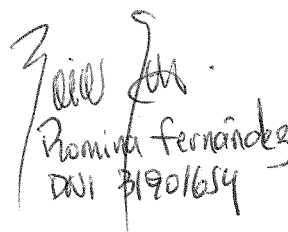 Romina Fernández
DNI 31901654